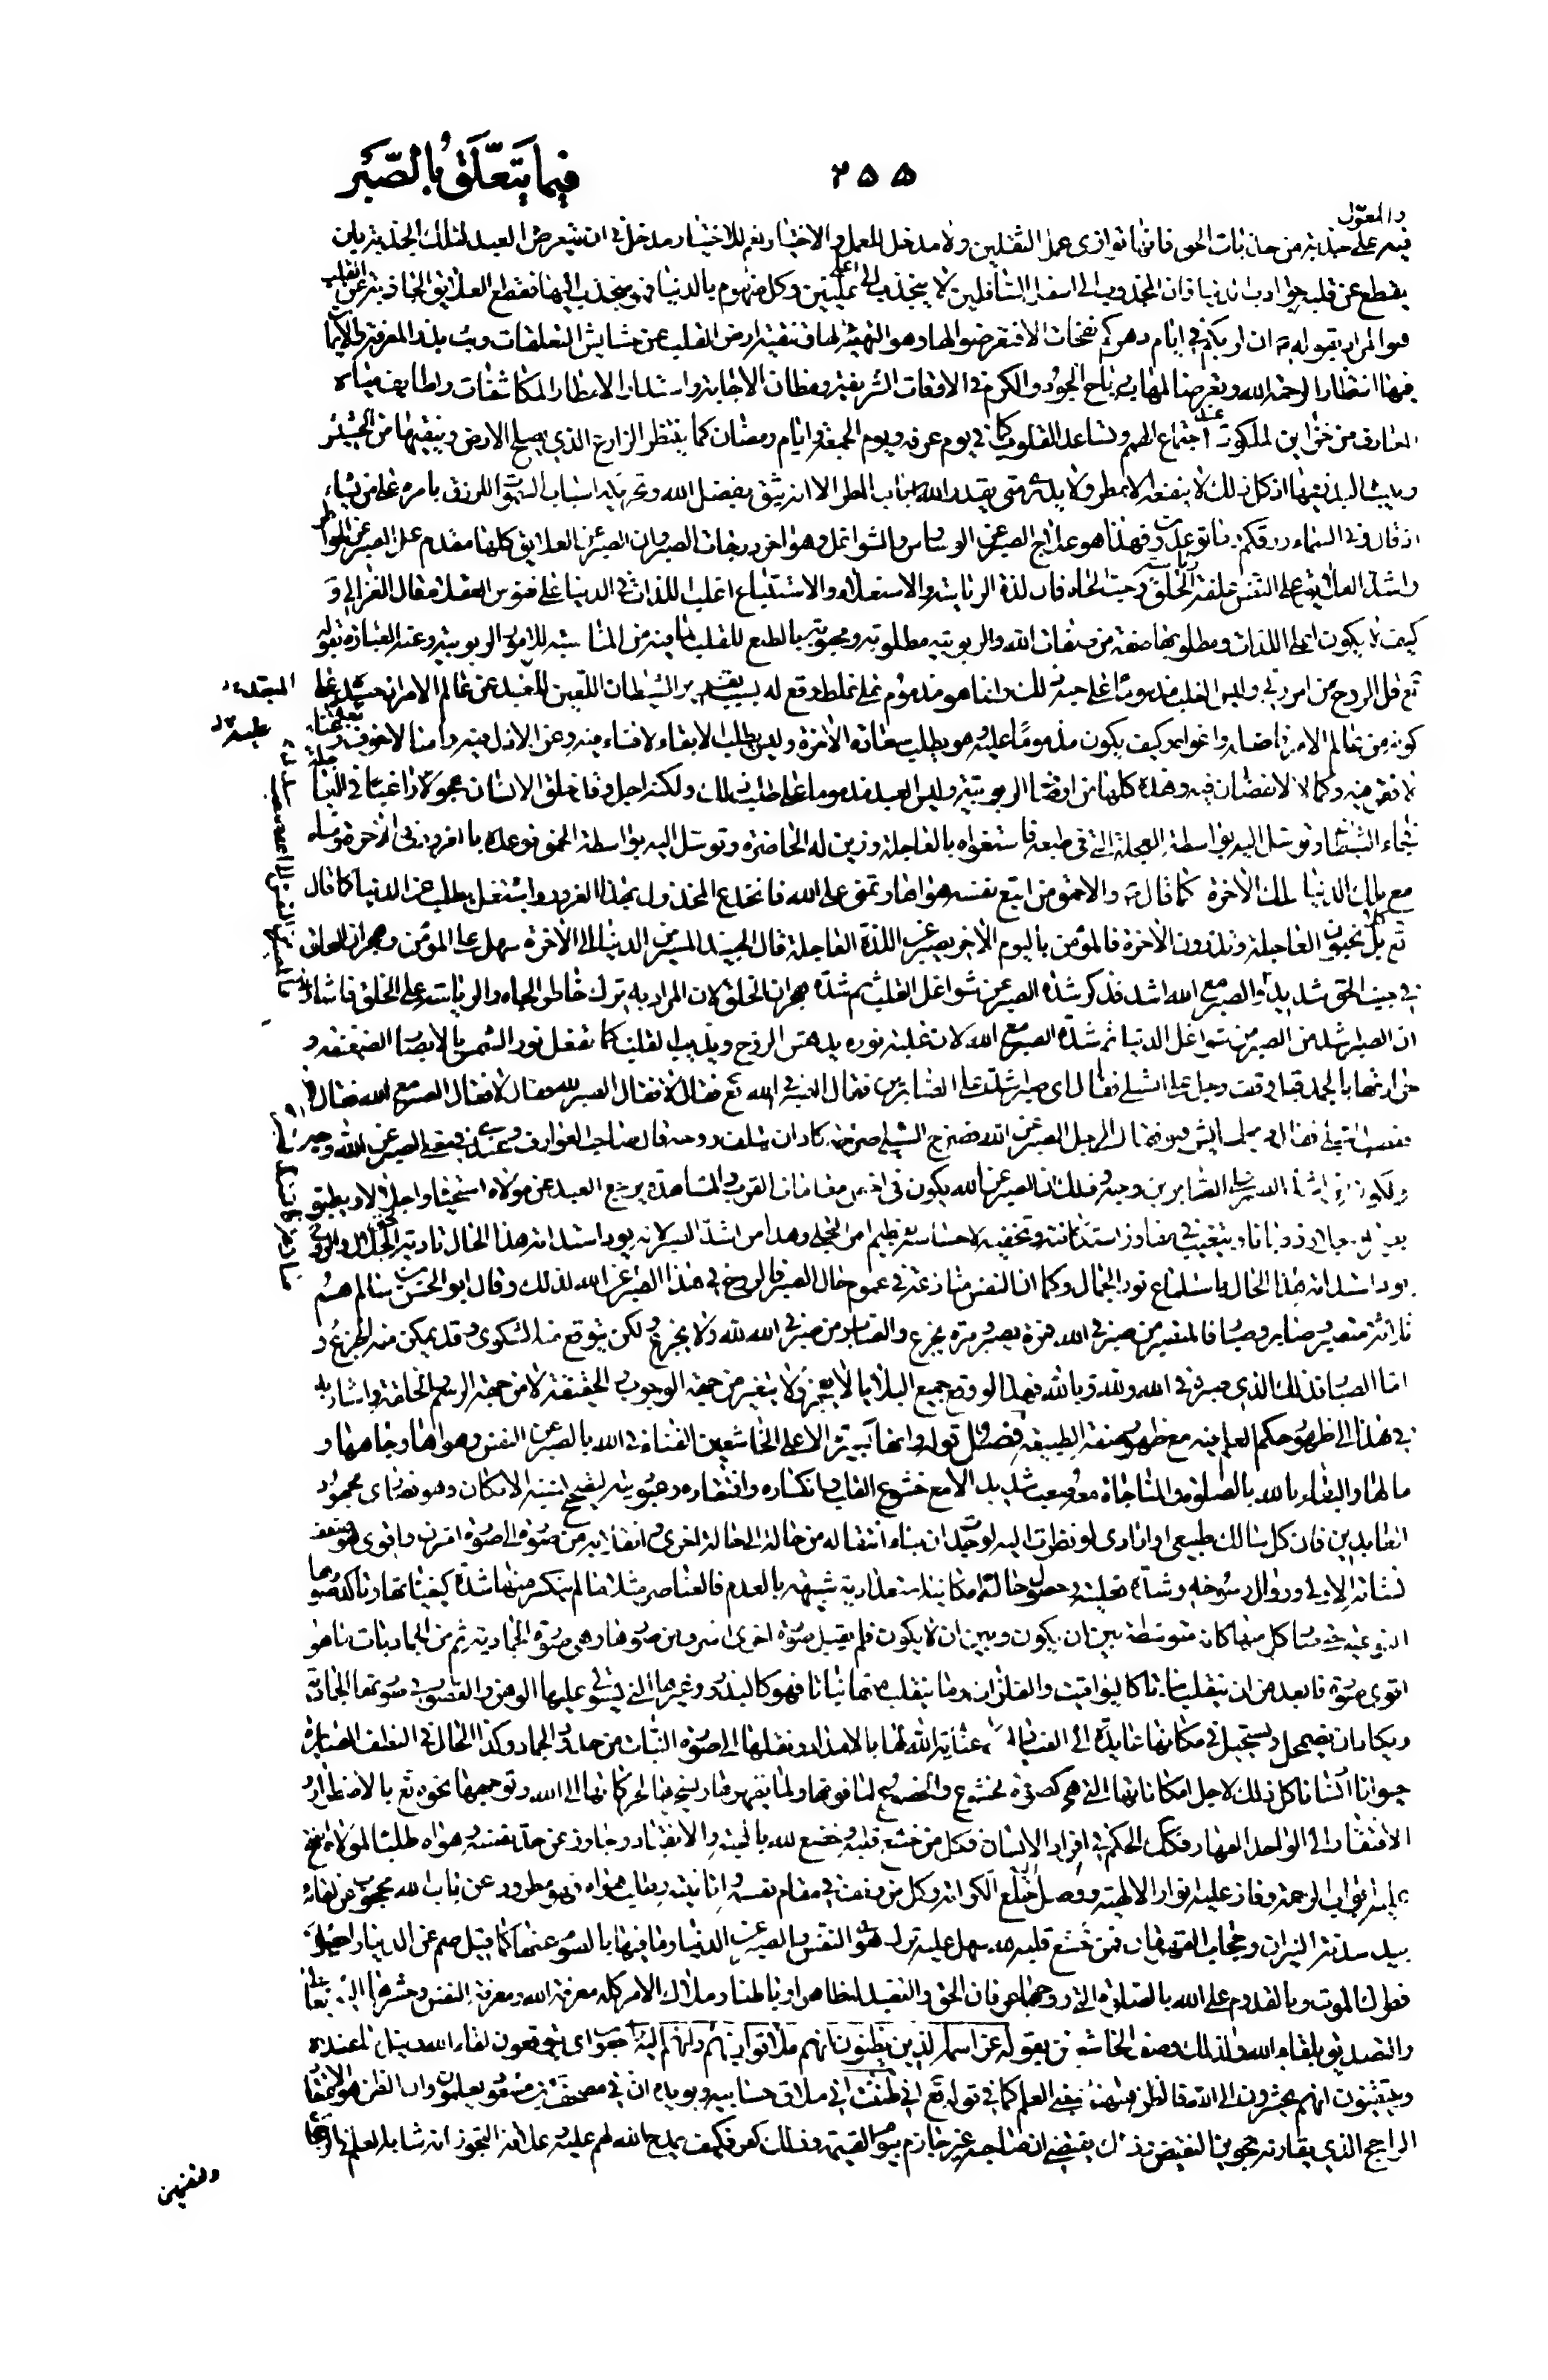 فيما يتعلق بالصبر
٢٥٥
والمعول
فيه على جذبة من جذبات الحق فانها توازى عمل الثقلين ولا مدخل للعمل والاختيار نعم للاختيار مدخل فى ان يتعرض العبد لتلك الجذبة بان
يقطع عن قلبه جواذب الدنيا فان المجذوب الى اسفل السافلين لا ينجذب الى اعلى عليين وكل منهوم بالدنيا فهو منجذب اليها فقطع العلايق الجاذبة عن القلب
هو المراد بقوله ان لربكم فى ايام دهركم نفحات الا فتعرضوا لها وهو التهيئة لها فتنقية ارض القلب عن حشايش التعلقات وبث بذر المعرفة والايمان
فيها انتظارا لرحمة الله وتعرضا لمهاب رياح الجود والكرم فى الاوقات الشريفة ومظان الاجابة واستدرار الامطار المكاشفات ولطايف مياه
المعارف من خزاين الملكوت عند اجتماع الهمم وتساعد القلوب كما فى يوم عرفة ويوم الجمعة وايام رمضان كما ينتظر الزارع الذى يصلح الارض وينقيها من الحشيش
ويبث البذر فيها اذ كل ذلك لا ينفعه الا بمطر ولا يدرى متى يقدر الله اسباب المطر الا انه يثق بفضل الله وتحريكه اسباب السموات للرزق بامره على من يشاء
اذ قال وفى السماء رزقكم وما توعدون فهذا هو علاج الصبر عن الوسواس والشواغل وهو اخر درجات الصبر وان الصبر عن العلايق كلها مقدم على الصبر عن الخواطر
واشد العلايق على النفس علقة الخلق وحب الجاه فان لذة الرياسة والاستعلاء والاستتباع اغلب اللذات فى الدنيا على نفوس العقلاء قال الغزالى و
كيف لا يكون اغلب اللذات ومطلوبها صفة من صفات الله والربوبية مطلوبة ومحبوبة بالطبع للقلب لما فيه من المناسبة لامور الربوبية وعنه العبارة بقوله
تع قل الروح من امر ربى وليس القلب مذموما على حبه ذلك وانما هو مذموم على غلط وقع له بسبب تغرير الشيطان اللعين المبعد عن عالم الامر اذ حسده على
كونه من عالم الامر فاضله واغواه وكيف يكون مذموما عليه وهو يطلب سعادة الاخرة وليس يطلب الا بقاء لا فناء فيه وعزا لا ذل فيه وامنا لا خوف فيه وغنا
لا فقر فيه وكمالا لا نقصان فيه وهذه كلها من اوصاف الربوبية وليس العبد مذموما على طلب ذلك ولكنه اجل وقد خلق الانسان عجولا راغبا فى الدنيا
فجاء الشيطان وتوسل اليه بواسطة العجلة التى فى طبعه فاستغواه بالعاجلة وزين له الحاضرة وتوسل اليه بواسطة الحمق فوعده بالغرور فى الاخرة ومناه
مع ملك الدنيا ملك الاخرة كما قال والاحمق من اتبع نفسه هواها وتمنى على الله فانخدع المخذول بهذا الغرور واشتغل بطلب عز الدنيا كما قال
تع بل تحبون العاجلة وتذرون الاخرة فالمؤمن باليوم الاخر يصبر عن اللذة العاجلة قال الجنيد المسير من الدنيا الى الاخرة سهل على المؤمن وهجران الخلق
فى جنب الحق شديد والصبر مع الله اشد فذكر شدة الصبر عن شواغل القلب ثم شدة هجران الخلق لان المراد به ترك خاطر الجاه والرياسة على الخلق فاشار
ان الصبر اشد من الصبر عن شواغل الدنيا ثم شدة الصبر مع الله لان غلبة نوره يدهش الروح ويذيب القلب كما تفعل نور الشمس بالابصار الضعيفة و
وقف رجل على الشبلى فقال اى صبر اشد على الصابرين فقال الصبر فى الله تع فقال لا فقال الصبر لله فقال لا فقال الصبر مع الله فقال لا
فغضب الشبلى فقال ايش هو فقال الرجل الصبر عن الله فصرخ الشبلى صرخة كاد ان يتلف روحه قال صاحب العوارف وعندى فى معنى الصبر عن الله وجه
ولكونه من اشد الصبر على الصابرين وجه وذلك ان الصبر عن الله يكون فى اخص مقامات القرب والمشاهدة يرجع العبد عن مولاه استحياء واجلالا وينطبق
يتغيب فى مفاوز استكانته وتخفيه لاحساسه بعظيم امر التجلى وهذا من اشد الصبر لانه يود استدامة هذا الحال تادية لحق الجلال والروح
يود استدامة هذا الحال باستلماع نور الجمال وكما ان النفس منازعة فى عموم حال الصبر فالروح فى هذا الصبر عن الله لذلك وقال ابو الحسن بن سالم هم
ثلاثة متصبر وصابر وصبار فالمتصبر من صبر فى الله فمرة يصبر ومرة يجزع والصابر من صبر فى الله لله ولا يجزع ولكن يتوقع منه الشكوى وقد يمكن منه الجزع و
اما الصبار فذلك الذى صبره فى الله ولله وبالله فهذا لو وقع جميع البلايا لا يعجز ولا يتغير من جهة الوجوب والحقيقة لا من جهة الرسم والخلقة واشار به
فى هذا الى ظهور حكم العلم فيه مع ظهور صفة الطبيعة فصل قوله وانها لكبيرة الا على الخاشعين الفناء فى الله بالصبر عن النفس وهواها وجاهها و
مالها والبقاء بالله بالصلوة والمناجاة معه صعب شديد الا مع خشوع القلب وانكساره وافتقاره
العابدين فان كل سالك طبيعى او ارادى لو نظرت اليه لوجدت ان بناء انتقاله من حالة الى حالة اخرى وانقلابه من صورة الى صورة اشرف واقوى هو ضعف
نشأته الاولى وزوال رسوخه وحصول حالة امكانية استعدادية شبيهة بالعدم فالعناصر مثلا ما لم ينكسر منها شدة كيفياتها وتأكد صورها
النوعية حتى صار كل منها كانه متوسطة بين ان يكون وبين ان لا يكون فلم يقبل صورة اخرى اشرف من صورها وهى صورة الجمادية ثم من الجمادات ما هو
اقوى صورة فابعد من ان ينقلب نباتا كاليواقيت والفلزات وما ينقلب منها نباتا فهو كالبذور وغيرها التى يستولى عليها الوهن والقصور فى صورتها الجمادية
ويكاد ان يضمحل ويستحيل فى مكانها عناية الله لها بالامداد ونقلها الى صورة النبات من حد الجماد وكذا الحال فى النطفة الصائرة
حيوانا انسانا كل ذلك لاجل امكاناتها التى هى كصورة الخشوع والخضوع لما فوقها ولما يقهرها ويتجه بها لحركاتها الى الله وتوجهها نحوه تع بالاضطرار و
الافتقار الى الواحد القهار فكذلك الحكم فى افراد الانسان فكل من خشع قلبه وخضع لله بالمحبة والانقياد وجاوز عن حد نفسه وهواه طلبا لمولاه انفتح
عليه ابواب الرحمة وفاز عليه انوار الالهية ووصل الى خلع الكرامة وكل من وقف فى مقام نفسه وانانيته وطلب هواه فهو مطرود عن باب الله محجوب عن لقائه
بيد سدنة النيران وحجاب القهرمان فمن خشع قلبه لله سهل عليه ترك هوى النفس والصبر عن الدنيا وما فيها بالصوم عنها كما قيل صم عن الدنيا واجعل
فطرك الموت وبالقدوم على الله بالصلوة التى روحها عرفان الحق والتعبد له ظاهرا وباطنا وملاك الامر كله معرفة الله ومعرفة النفس وحشرها اليه تعالى
والتصديق بلقاء الله ولذلك وصف الخاشعين بقوله عز اسمه الذين يظنون انهم ملاقوا ربهم وانهم اليه راجعون اى يتوقعون لقاء الله ونيل ما عنده
ويتيقنون انهم يحشرون الى الله فالظن ههنا بمعنى العلم كما فى قوله تع انى ظننت انى ملاق حسابيه ويؤيده ان فى مصحف ابن مسعود يعلمون وان الظن هو الاعتقاد
الراجح الذى يقارنه تجويز النقيض وذلك يقتضى ان صاحبه غير جازم بيوم القيمة وذلك كفر فكيف يمدح الله لهم عليه على ان التجوز انه شابه العلم فى الرجحان